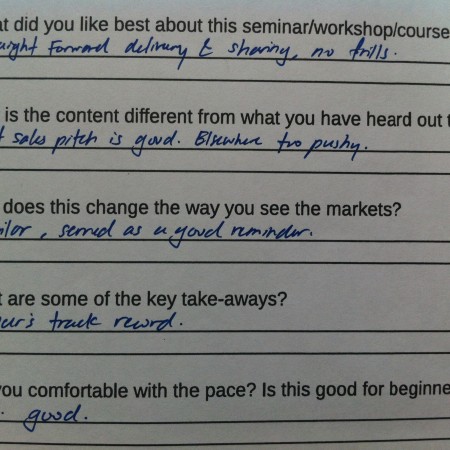 at did you like best about this seminar/workshop/course
aight Forward delivery & sharing, no frills.
is the content different from what you have heard out t
t sales pitch is good. Elsewhere too pushy.
does this change the way you see the markets?
ilar, served as a good reminder.
t are some of the key take-aways?
eur's track record.
you comfortable with the pace? Is this good for beginne
. good.